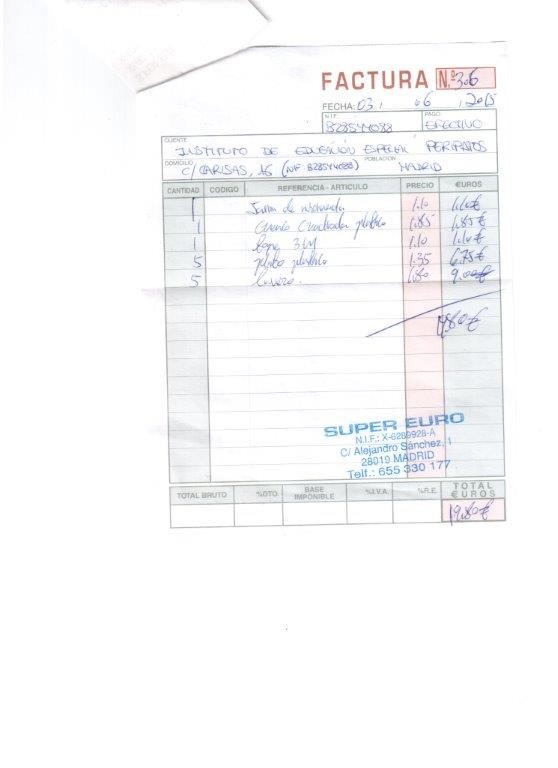 FACTURA N.º 306
FECHA: 03 / 06 / 2015
N.I.F. PAGO
B28544088 EFECTIVO
CLIENTE
INSTITUTO DE EDUCACIÓN ESPECIAL
DOMICILIO POBLACION
C/ CARISAS, (NIF: B28544088) MADRID
CANTIDAD CODIGO REFERENCIA - ARTICULO PRECIO €UROS
1 1.10 1,10€
1 cuadrada plastico 1,85 1,85€
1 1.10 1,10€
5 plato plastico 1.35 6.75€
5 1,80 9.00€
19,80€
SUPER EURO
N.I.F.: X-6289928-A
C/ Alejandro Sánchez, 1
28019 MADRID
Telf.: 655 330 177
TOTAL BRUTO %DTO. BASE IMPONIBLE %I.V.A. %R.E. TOTAL €UROS
19,80€